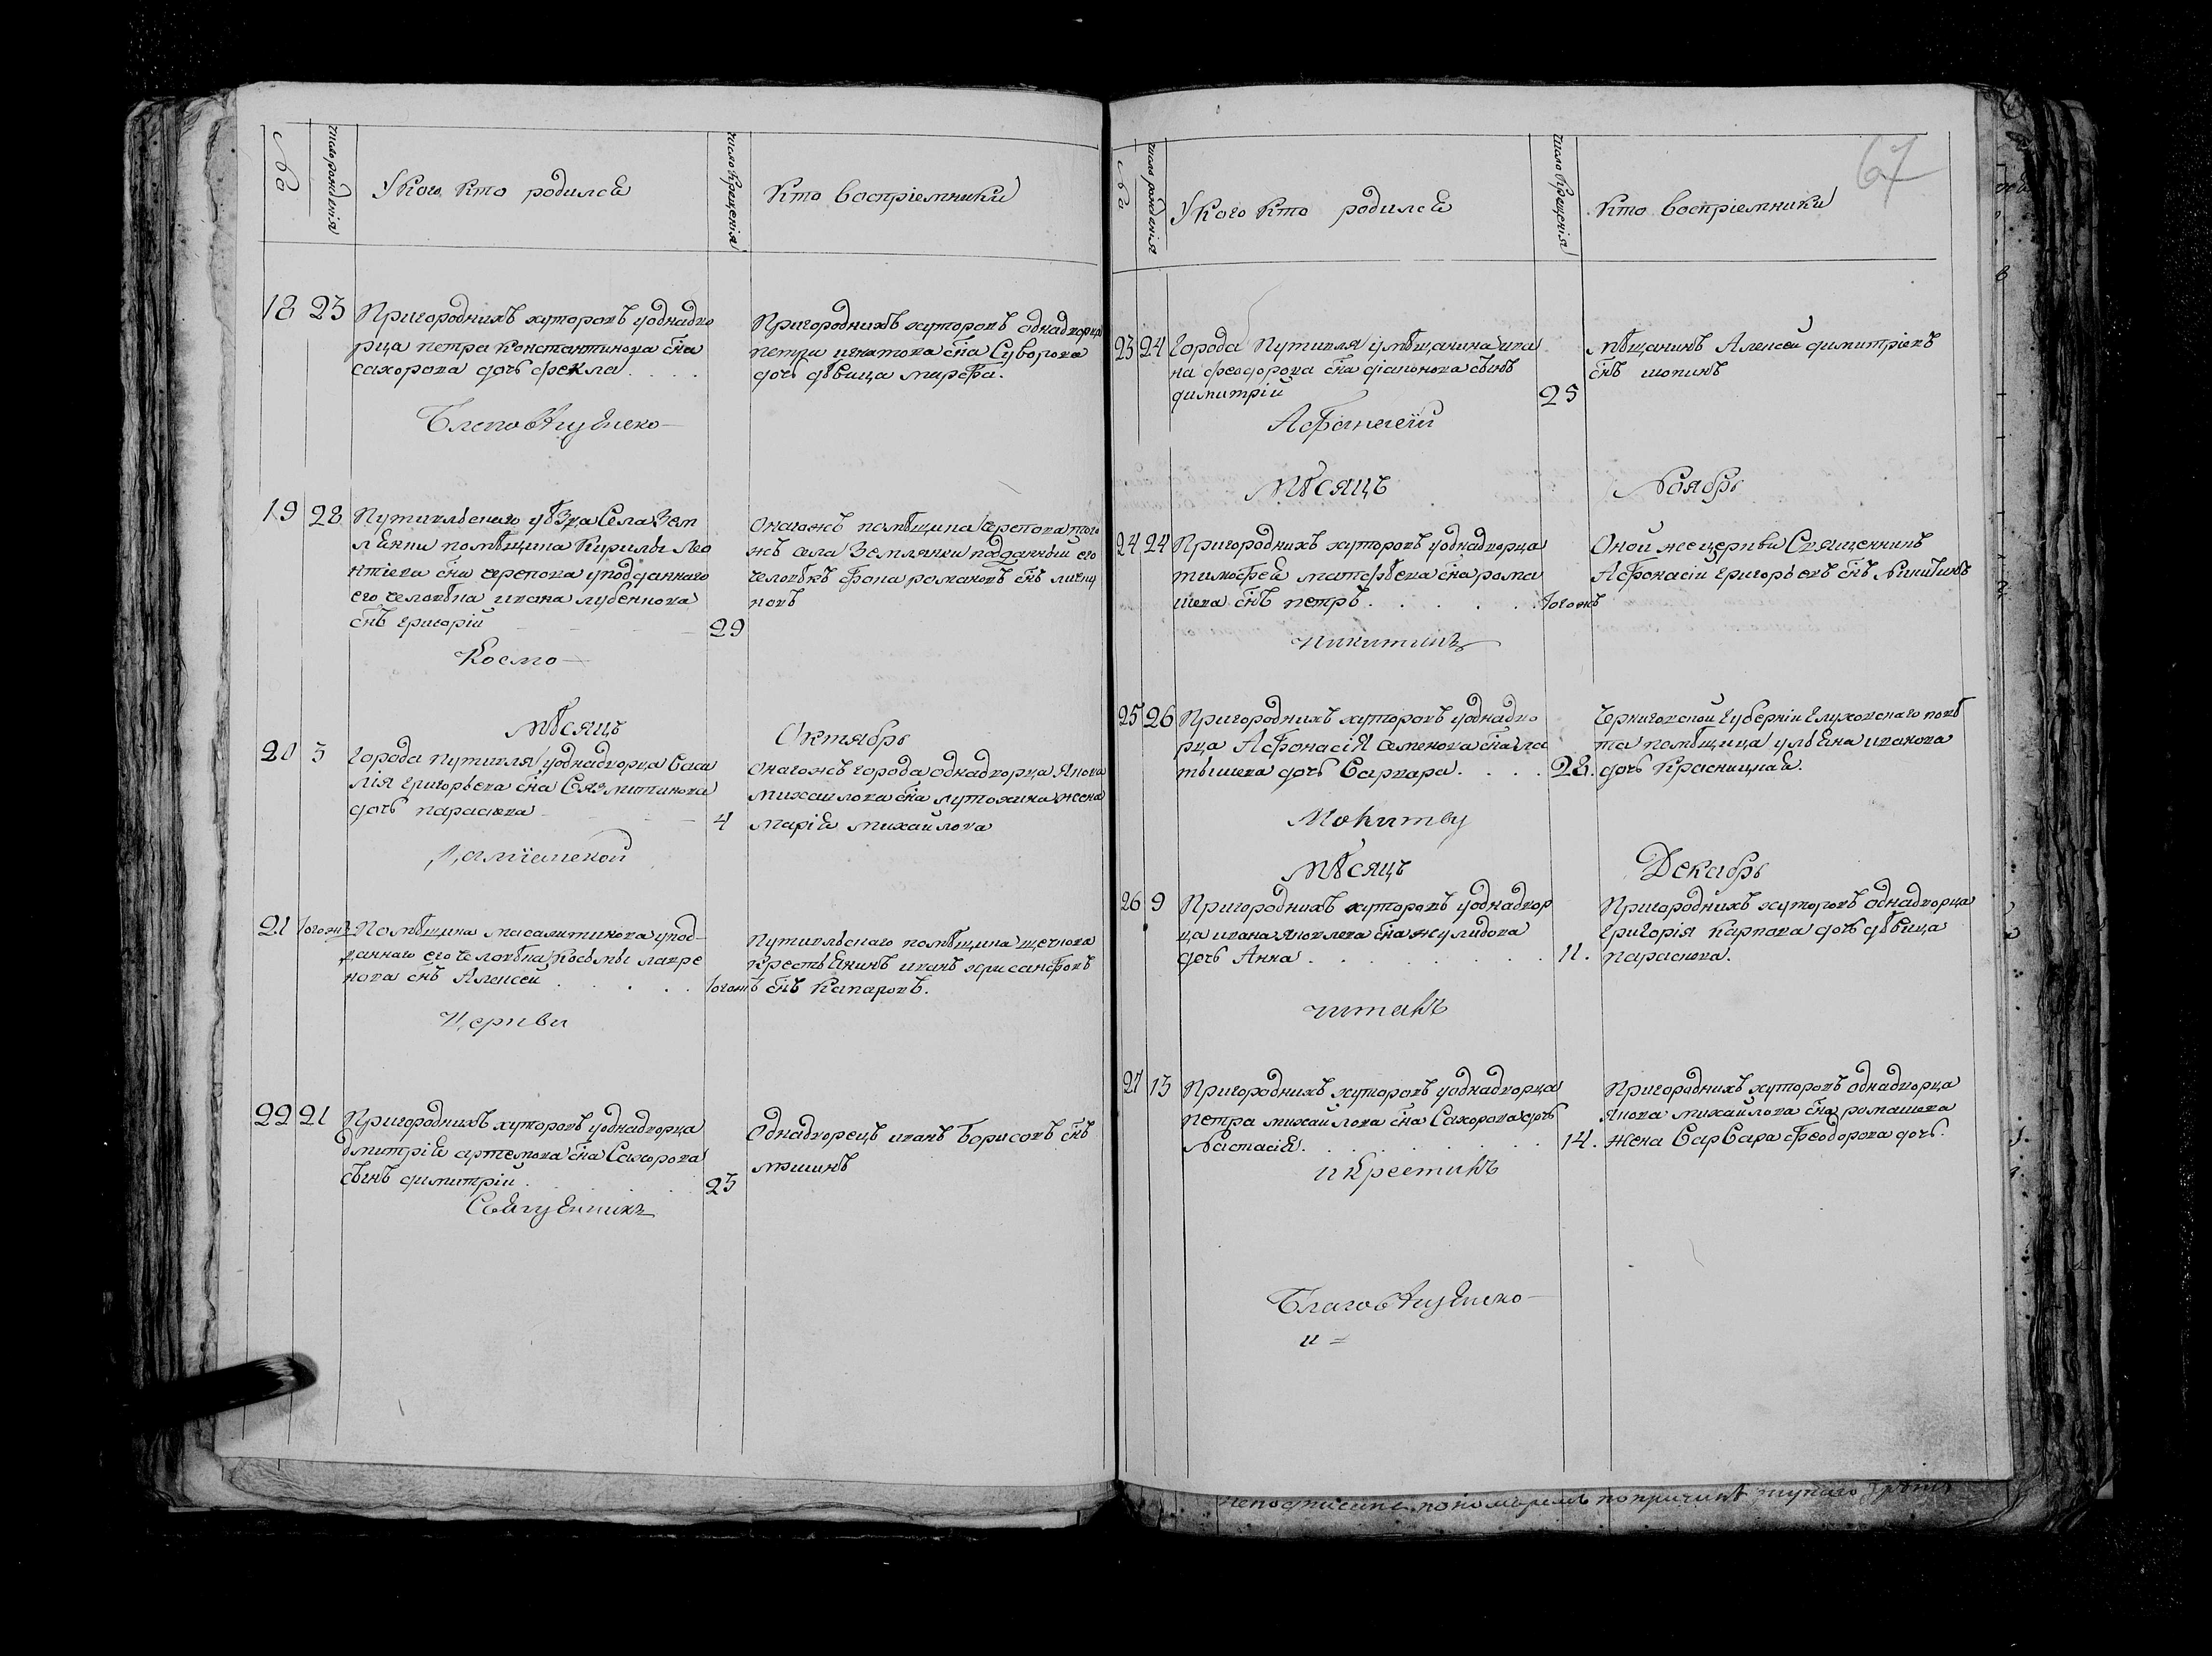 №
число рожденія
У кого кто родился
число крещенія
Кто воспріемники
18 23 Пригороднихъ хуторовъ уоднадво
рца петра константинова сн҃а
сахорова дочь фекла . . . .
Пригороднихъ хуторовъ однадворца
петра игнатова сн҃а Суворова
дочь дѣвица марѳа.
Благовѣщенско
19 28 Путивльскаго уѣзда Села Зем
лянки помѣщика Кирилы Лео
нтіева сн҃а черепова уподданнаго
его человѣка ивана лубенкова
сн҃ъ григорій 29
Оногожъ помѣщика черепова того
жъ села Землянки подданный его
человѣкъ фока романовъ сн҃ъ
новъ
Космо
мѣсяцъ Октябрь
20 3 города путивля уоднадворца васи
лія григорьева сн҃а
дочь парасковя 4
Оногожъ города однадворца якова
михайлова сн҃а лутохина жена
марія михайлова
Даміанской
21 тогожъ Помѣщика масалитинова упод
даннаго его человѣка Косьмы лавре
нова сн҃ъ Алексей . . . . . тогожъ
путивльскаго помѣщика щечкова
крестьянинъ иванъ хрисанфовъ
сн҃ъ Капаровъ.
Церкви
22 21 Пригороднихъ хуторовъ уоднадворца
Дмитрія артемова сн҃а Сахорова
сынъ димитрій . 23
Однадворецъ иванъ борисовъ сн҃ъ
мошинъ
Священникъ
67
№
число рожденія
У кого кто родился
число Крещенія
Кто воспріемники
23 24 города Путивля умѣщанина ива
на феодорова сн҃а діаконова сынъ
димитрій 25
мѣщанинъ Алексей димитріевъ
сн҃ъ шопинъ
Афанасій
мѣсяцъ Ноябрь
24 24 Пригороднихъ хуторовъ уоднадворца
тимофея матфѣева сн҃а рома
шева сн҃ъ петръ . . . . . . тогожъ
Оной же церкви Священникъ
Афонасій григорьевъ сн҃ъ Никитинъ
Никитинъ
25 26 Пригороднихъ хуторовъ уоднадво
рца Афонасія семенова сн҃а ла
тышева дочь варвара . . . . 28.
Черниговской губерніи глуховскаго повѣ
та помѣщица ульяна иванова
дочь Красницкая.
Молитву
мѣсяцъ Декабрь
26 9 Пригороднихъ хуторовъ уоднадвор
ца ивана яковлева сн҃а жулидова
дочь Анна . . . . . . . . 11.
Пригороднихъ хуторовъ однадворца
григорія карпова дочь дѣвица
параскова.
читалъ
27 13 Пригороднихъ хуторовъ уоднадворца
петра михайлова сн҃а Сахорова дочь
Настасія . . . . . . . . 14.
Пригороднихъ хуторовъ однадворца
якова михайлова сн҃а ромашева
жена варвара феодорова дочь.
и крестилъ
Благовѣщенско
и
пономаремъ попричинѣ